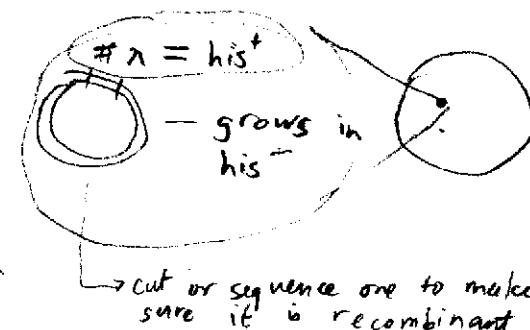 # λ = his⁺
— grows in
his⁻
cut or sequence one to make
sure it is recombinant